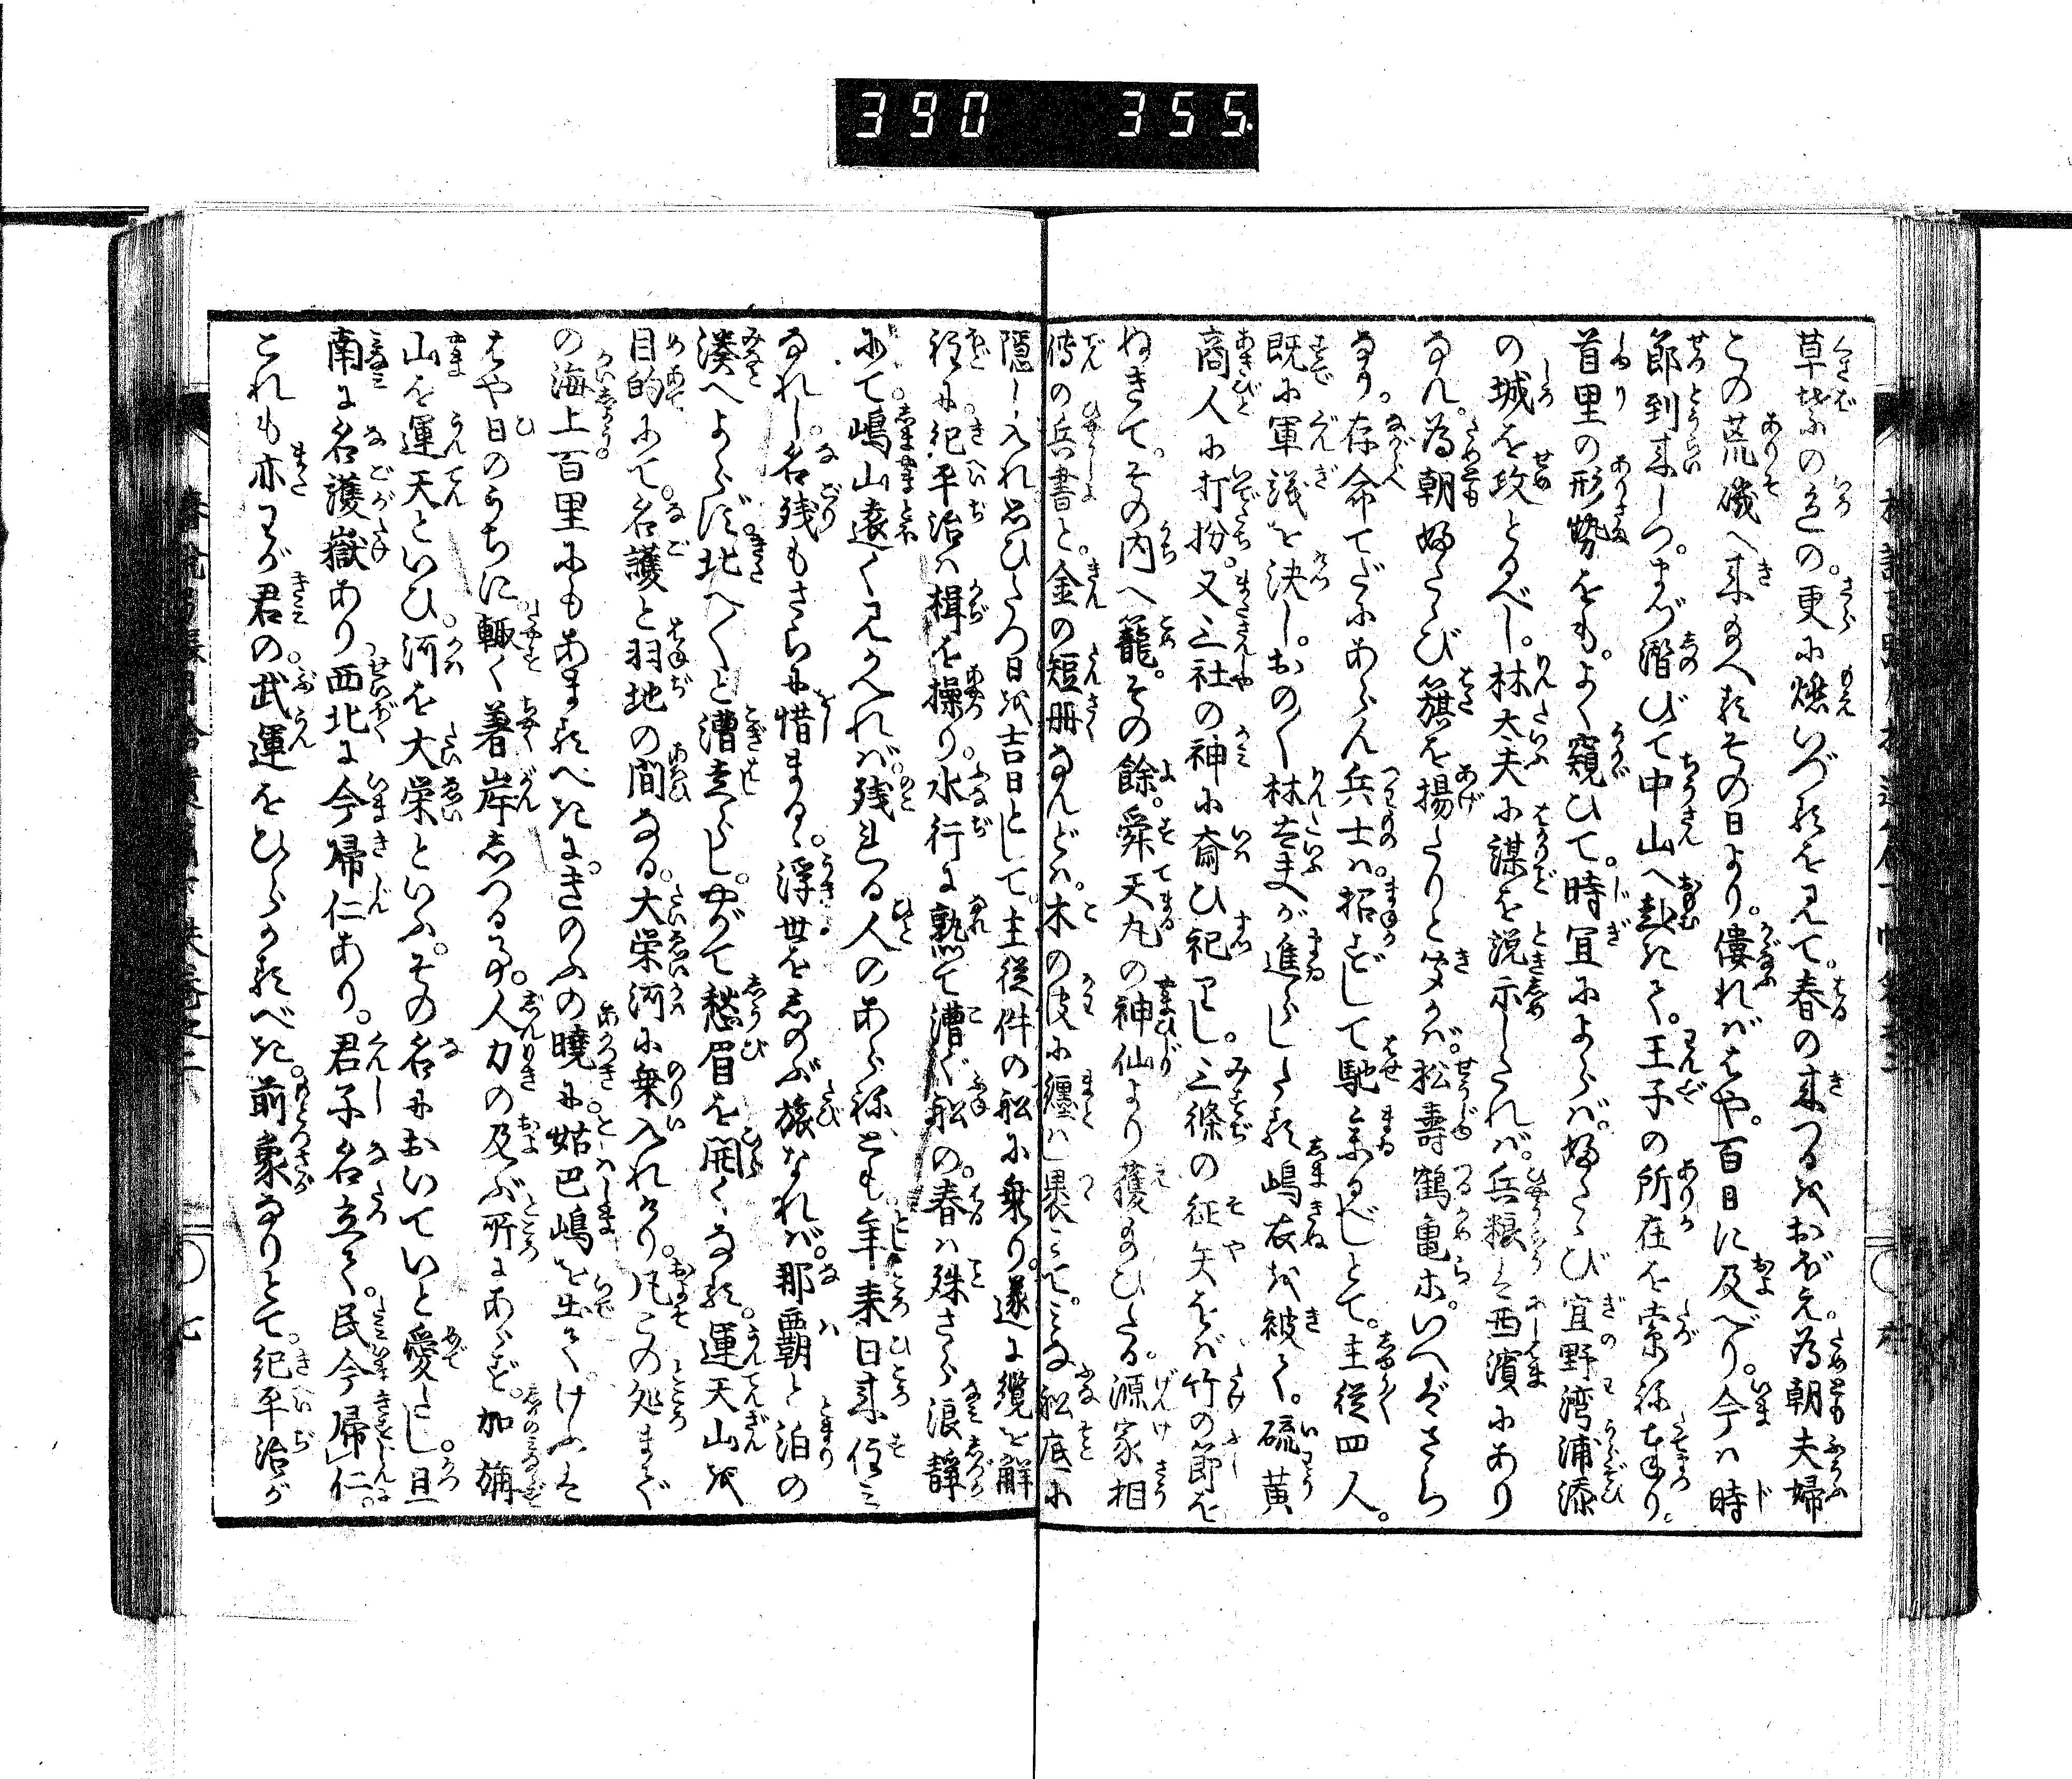 390 355.
草ばふの色の。更に燃いづるを見て。春の来つるをおぼえ。為朝夫婦
この荒磯へ来給へるその日より。僂ればはや。百日に及べり。今は時
節到来しつ。まづ潜びて中山へ赴きて。王子の所在を索ね奉り。
首里の形勢をも。よく窺ひて。時宜によらば。ふたゝび宜野湾浦添
の城を攻とるべし。林太夫に謀を説示したれば。兵粮は西濱にあり
なん。為朝ふたゝび籏を揚たりと聞かば。松壽鶴亀ホ。いへばさら
なり。存命てだにあらん兵士は。招ずして馳参るべしとて。主従四人。
既に軍議を決し。おの〳〵林太夫が進らしたる嶋衣を被て。硫黄
商人に打扮。又三社の神に斎ひ祀りし。三條の征矢をば竹の節を
ぬきて。その内へ籠。その餘。舜天丸の神仙より獲給ひたる。源家相
傳の兵書と。金の短冊なんどは。木の皮に纏ひ褁みて。みな舩底に
隠し入れ思ひたつ日を吉日として。主従件の舩に乗り。遂に纜を解
程に。紀平治は楫を操り。水行に熟て漕ぐ舩の。春は殊さら浪静
にて。嶋山遠く見かへれば。残れる人のあらねども。年来日来住み
なれし。名残もさらに惜まるゝ。浮世をしのぶ旅なれば。那覇と泊の
湊へよらず。北へ〳〵と漕走らし。やがて愁眉を開くなる。運天山を
目的にて。名護と羽地の間なる。大栄河に乗入れけり。凡この処まで
の海上百里にもあまるべきに。きのふの曉に姑巴嶋を出て。けふは
はや日のうちに。輙く着岸しつる事。人力の及ぶ所にあらず。加旃
山を運天といひ。河を大栄といふ。その名においていと愛たし。且
南に名護嶽あり西北に今帰仁あり。君子名立て。民今帰」仁。
これも亦わが君の。武運をひらくべき。前象なりとて。紀平治が
七